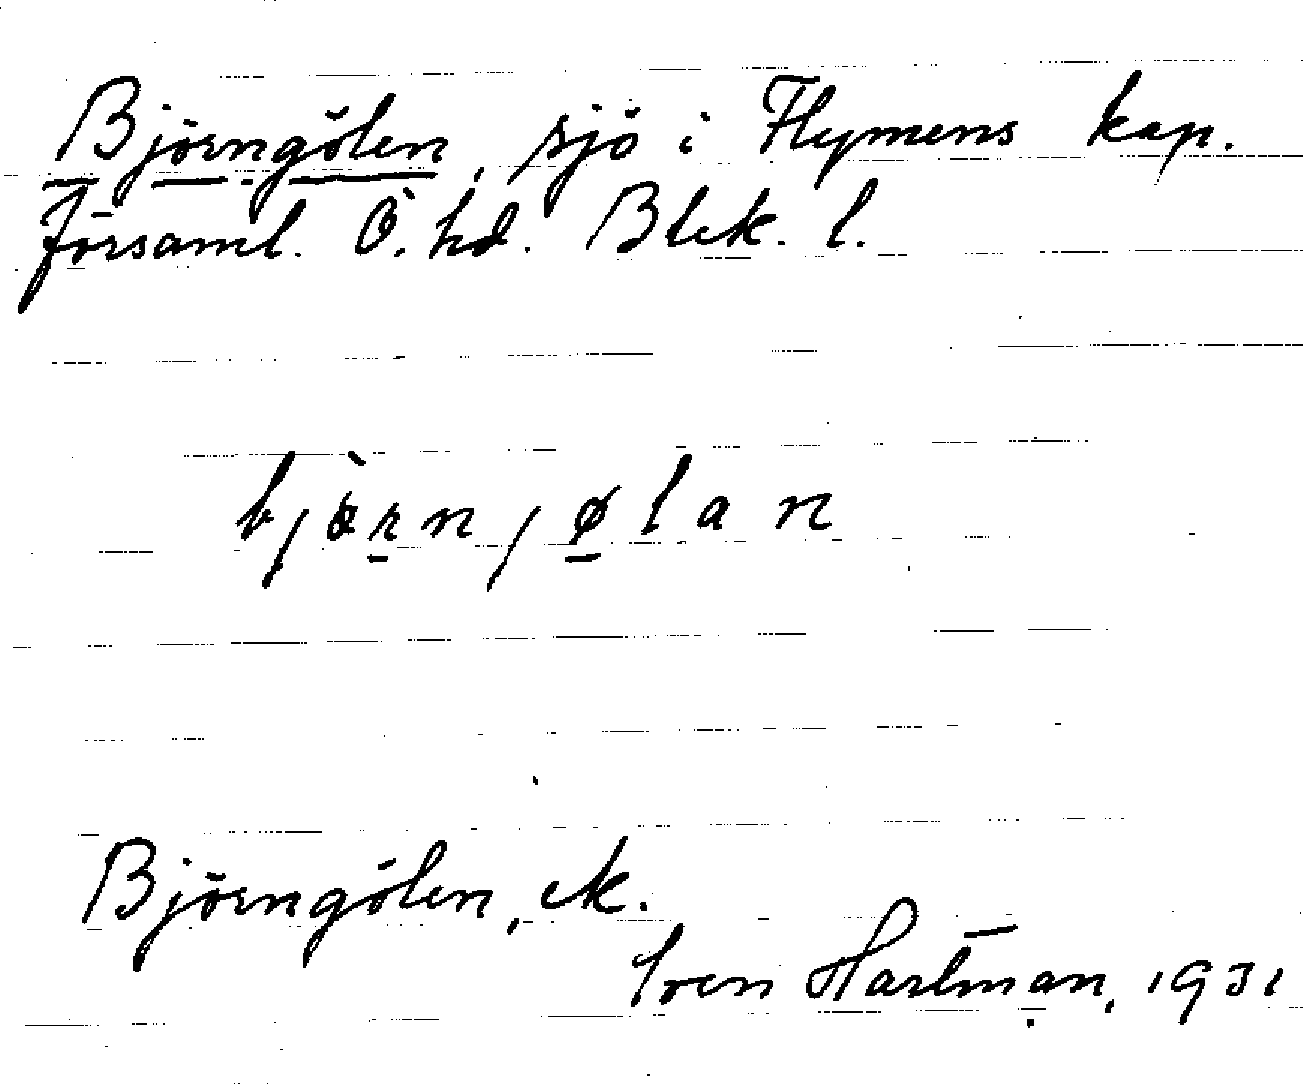 Björngölen, sjö i Flymens kap.
församl. Ö. hd. Blek. l.
bjö̀rnjølan
Björngölen, ek.
Sven Hartman, 1931